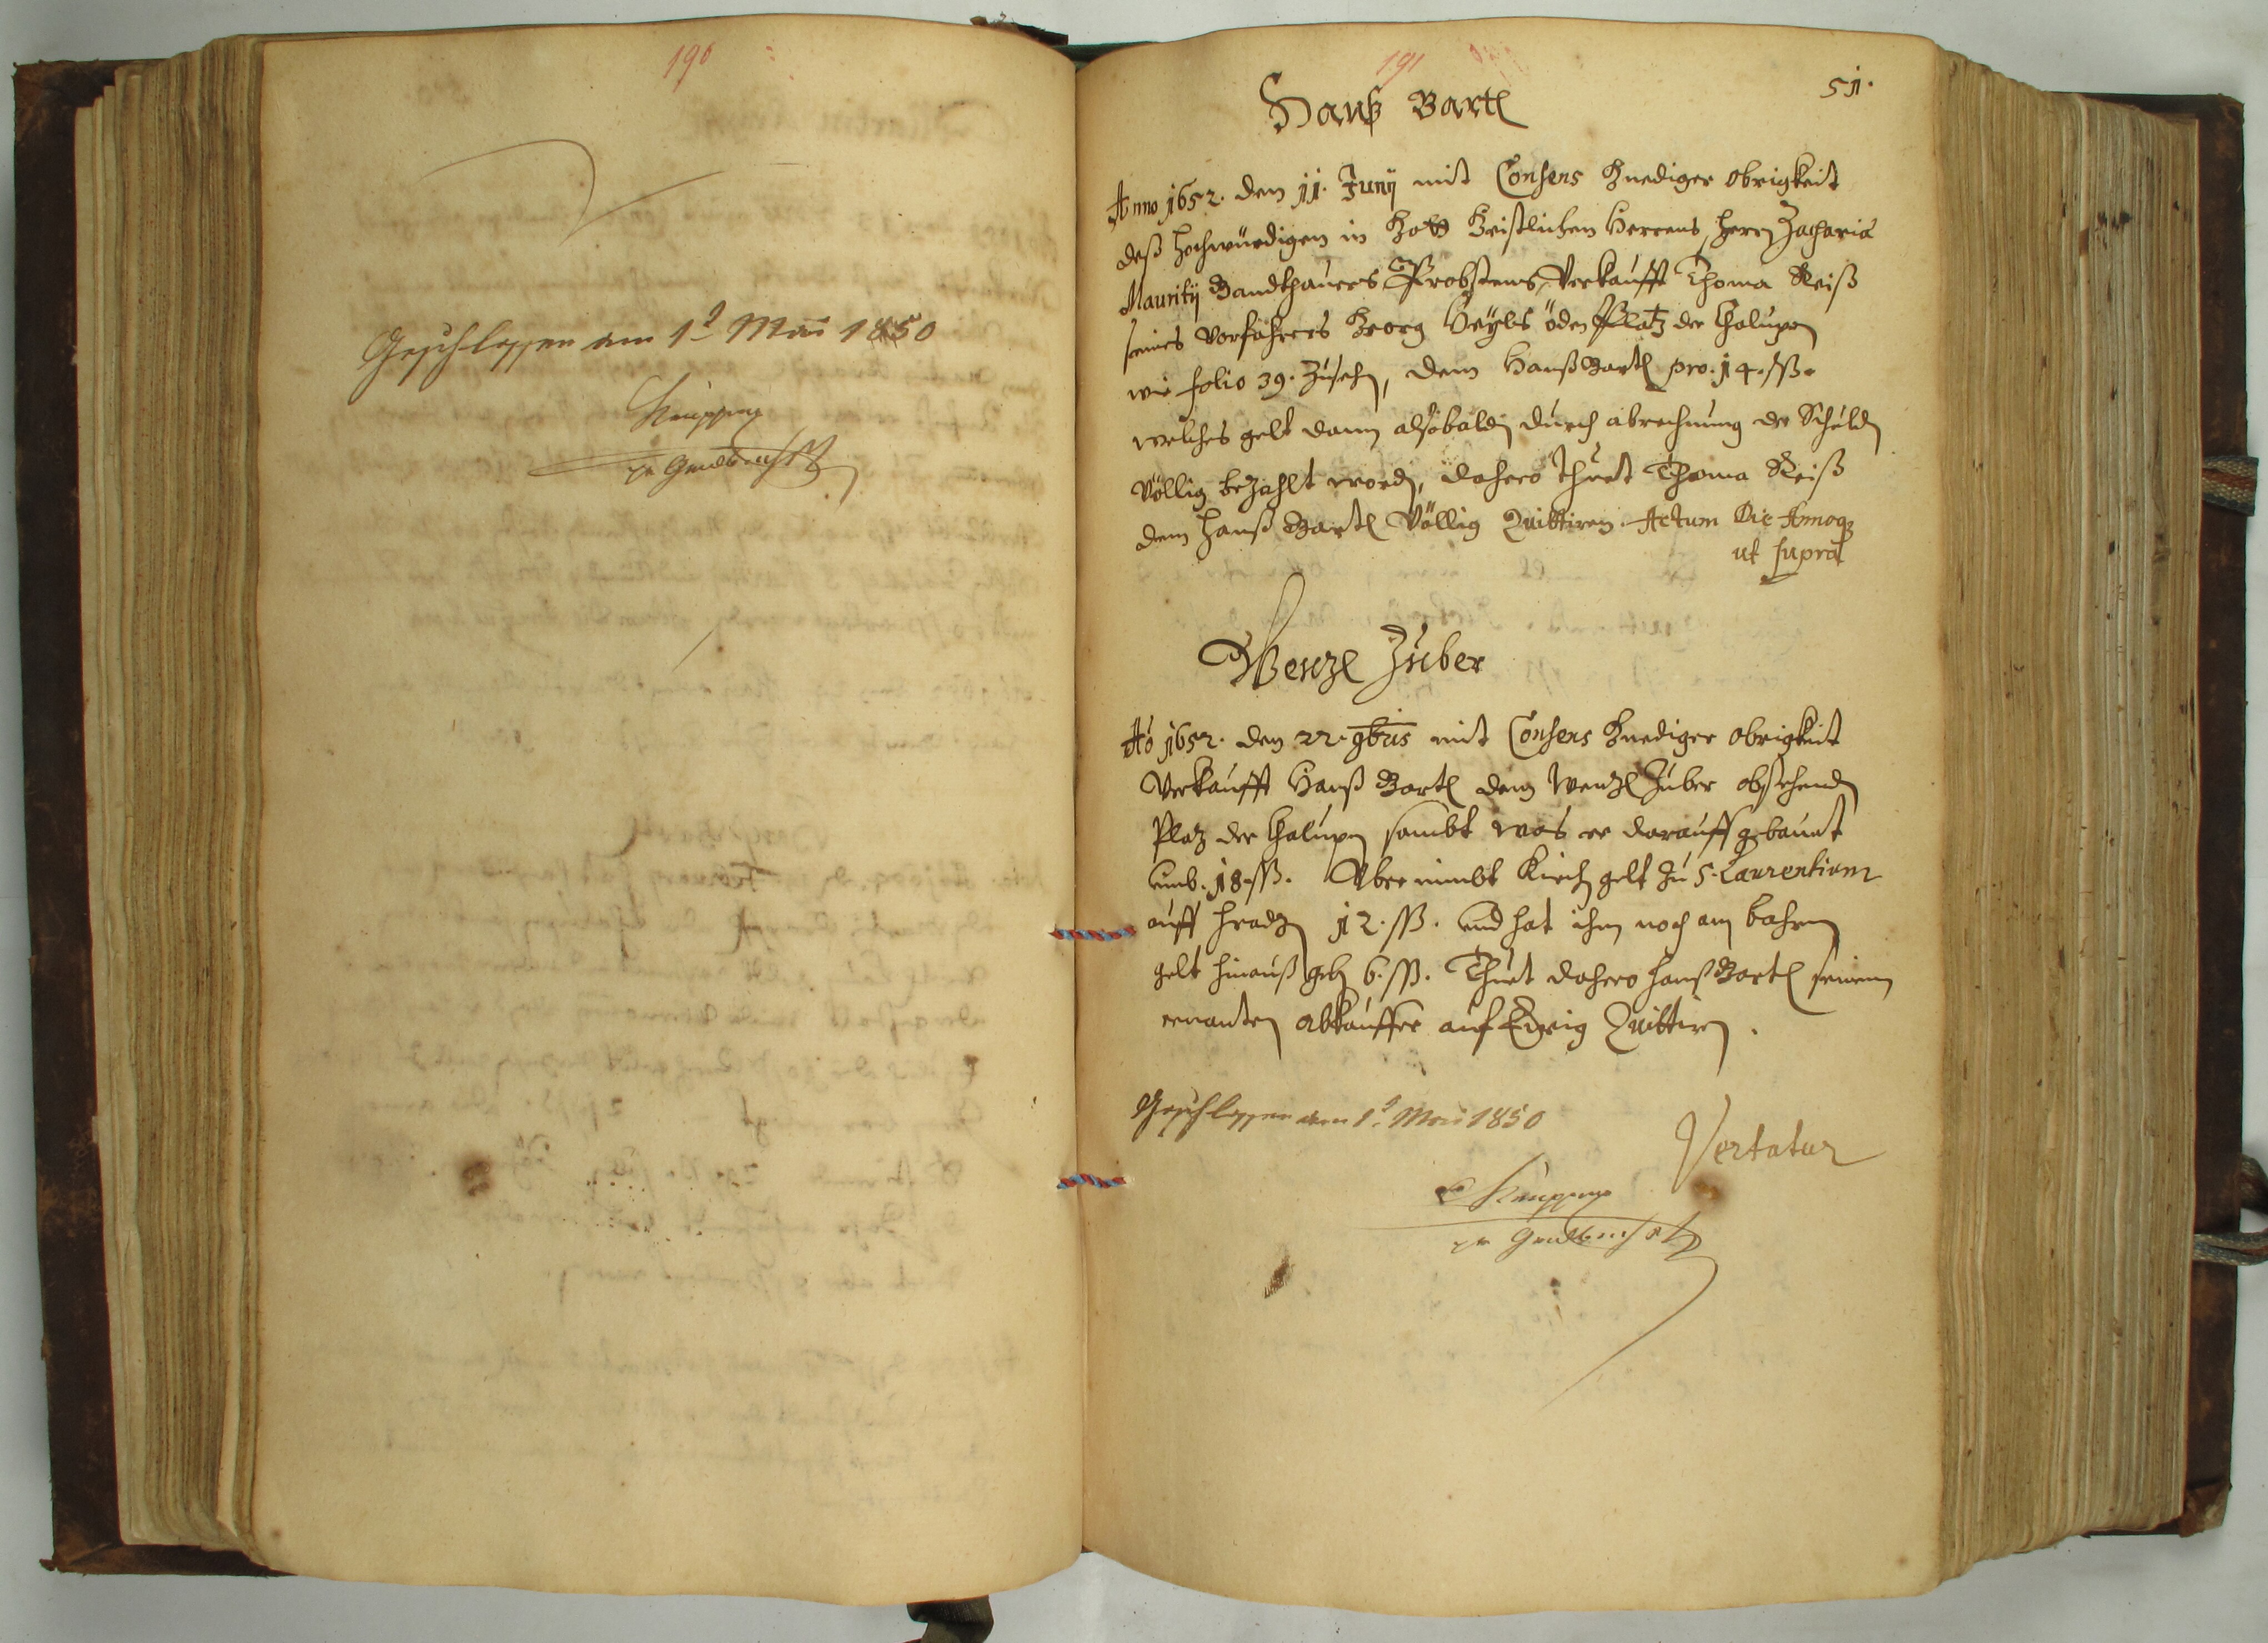 190
Geschlossen am 1t Mai 1850
191
51.
Hanß Bartl
Anno 1652. den 11. Junij mit Consens Gnediger Obrigkeit
deß Hochwürdigen in Gott Geistlichen Herrens, Herrn Zachariá
Mauritij Bandthauers Probstens, Verkaufft Thoma Reiß
seines Vorfahrers Georg öden Platz der Chalupen
wie folio 39. Zusehen, dem Hanß Bartl pro. 14. ßß.
welches gelt dann alsobalden durch abrechnung der Schulden
Völlig bezahlt worden, dahero thuet Thoma Reiß
dem Hanß Bartl Völlig Quittiren. Actum Die Annoq
ut supra
Wenzl Zuber
Aō 1652. den 22. 9bris mit Consens Gnediger Obrigkeit
Verkaufft Hanß Bartl dem Wenzl Zuber obstehenden
Platz der Chalupen sambt was er darauff gebauet
umb. 18. ßß. Übernimbt Kirchen gelt zu S. Laurentium
auff 12. ßß. und hat ihm noch am bahren
gelt hinauß geben 6. ßß. Thuet dahero Hanß Bartl seinem
ernanten abkauffer auf Ewig Quittiren.
Geschlossen am 1t Mai 1850
Vertatur